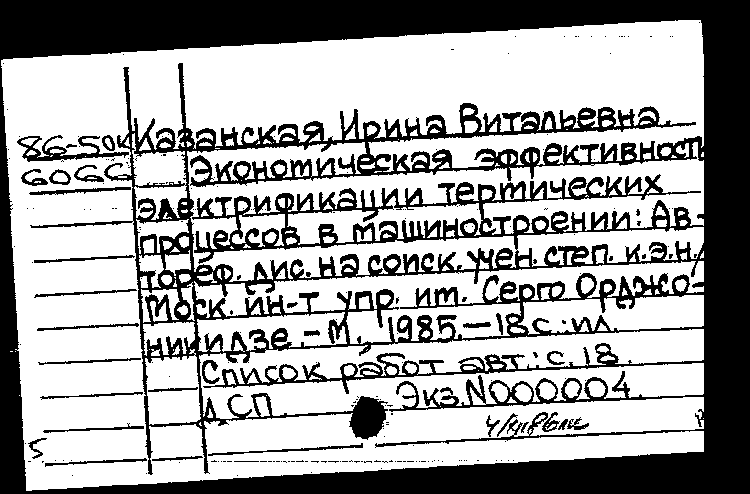 86-50к Казанская, Ирина Витальевна.
6066 Экономическая эффективность
электрификации термических
процессов в машиностроении: Ав-
тореф. дис. на соиск. учен. степ. к.э.н./
Моск. ин-т упр. им. Серго Орджо-
никидзе. - М., 1985. - 18 с.: ил.
Список работ авт.: с. 18.
ДСП. Экз. N000004.
5